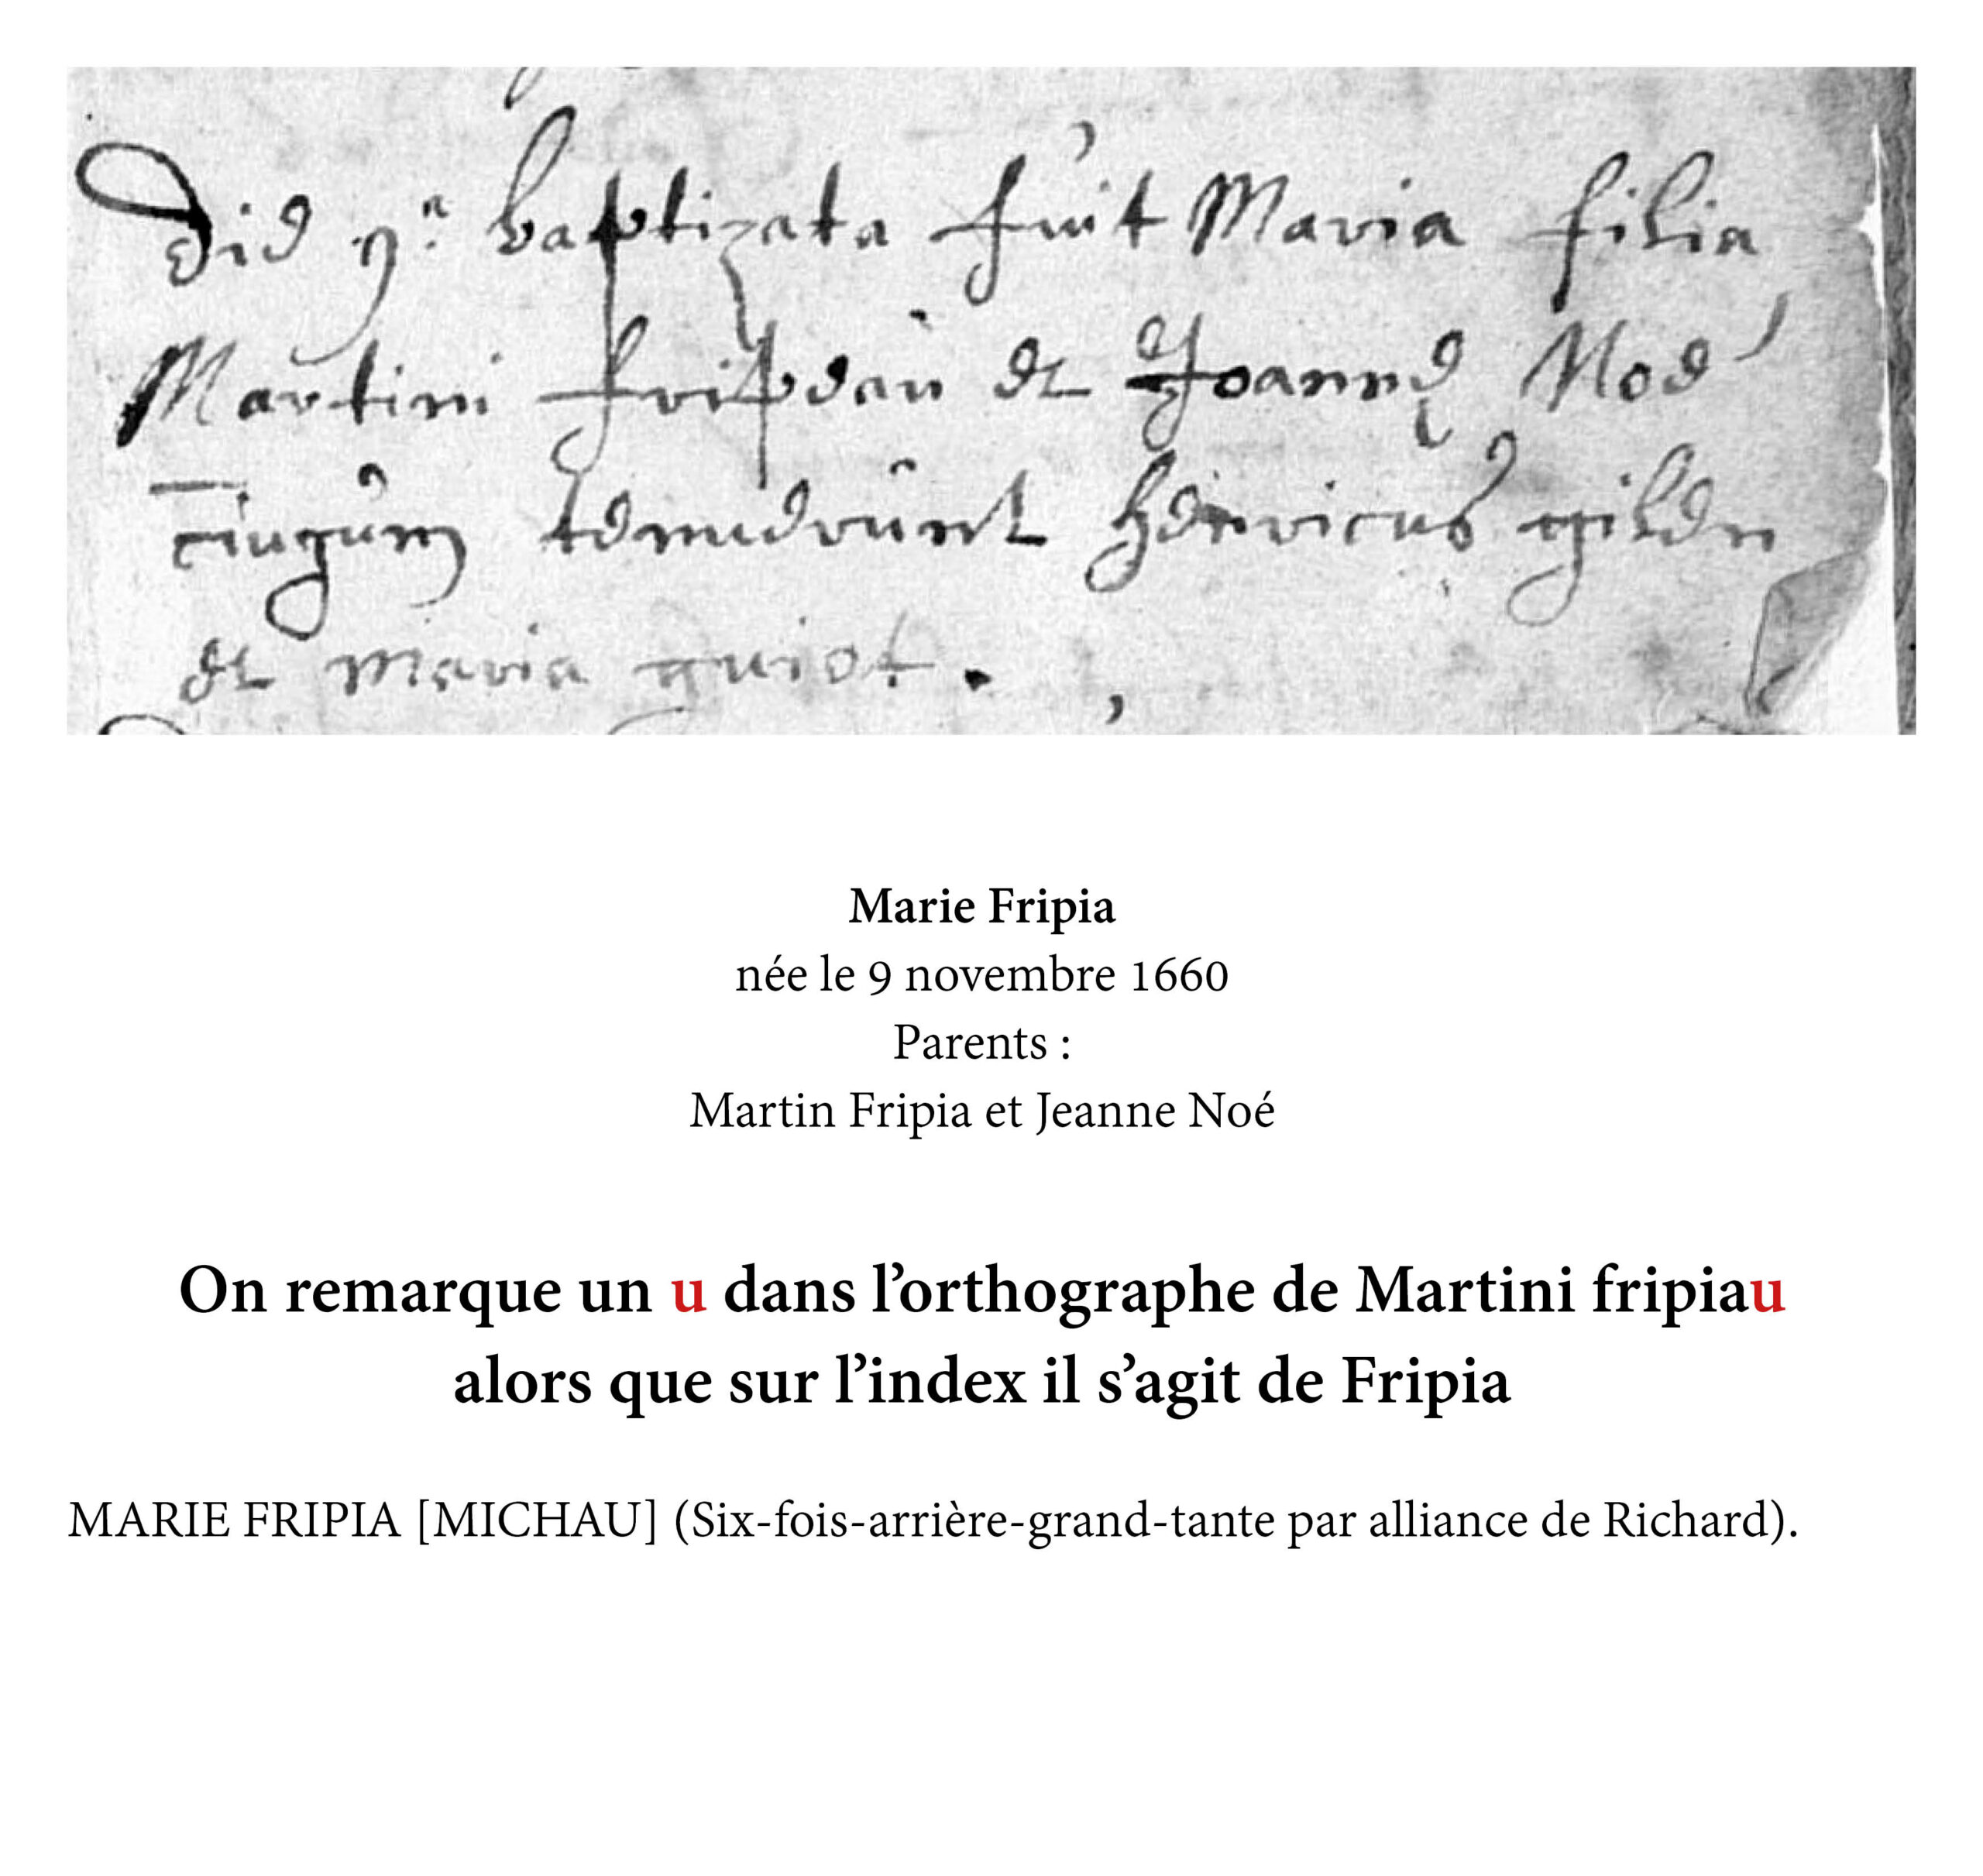 Die 9.ª baptizata fuit Maria filia
Martini fripeau et Joannę Noe
cingūm tenuerūnt Henricus gilen
et maria guiot.
Marie Fripia
née le 9 novembre 1660
Parents :
Martin Fripia et Jeanne Noé
On remarque un u dans l’orthographe de Martini fripiau
alors que sur l’index il s’agit de Fripia
MARIE FRIPIA [MICHAU] (Six-fois-arrière-grand-tante par alliance de Richard).